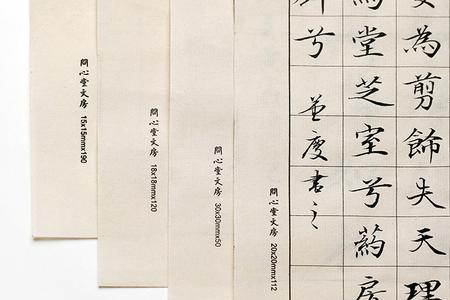 為剪飾失天理
堂芝室兮葯房
兮 書之
問心堂文房 20x20mmx112
問心堂文房 30x30mmx50
問心堂文房 18x18mmx120
問心堂文房 15x15mmx190